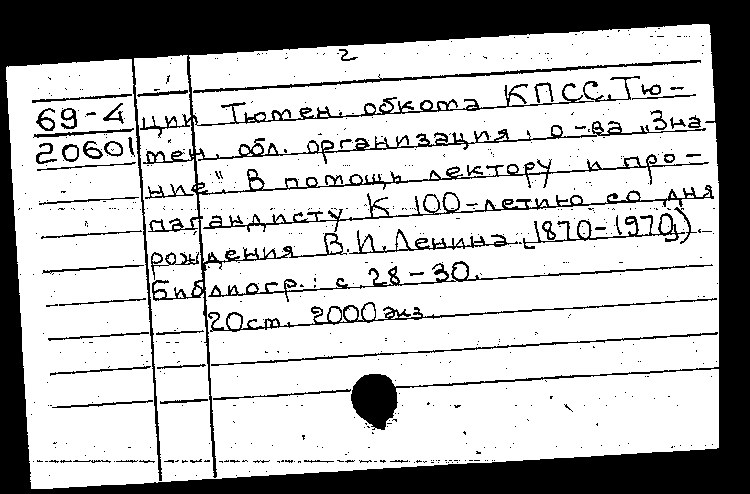 2
69-4 ции Тюмен. обкома КПСС. Тю-
20601 мен. обл. организация о-ва „Зна-
ние". В помощь лектору и про-
пагандисту. К 100-летию со дня
рождения В.И. Ленина [1870-1970]).
Библиогр.: с. 28-30.
20 ст. 2000 экз.